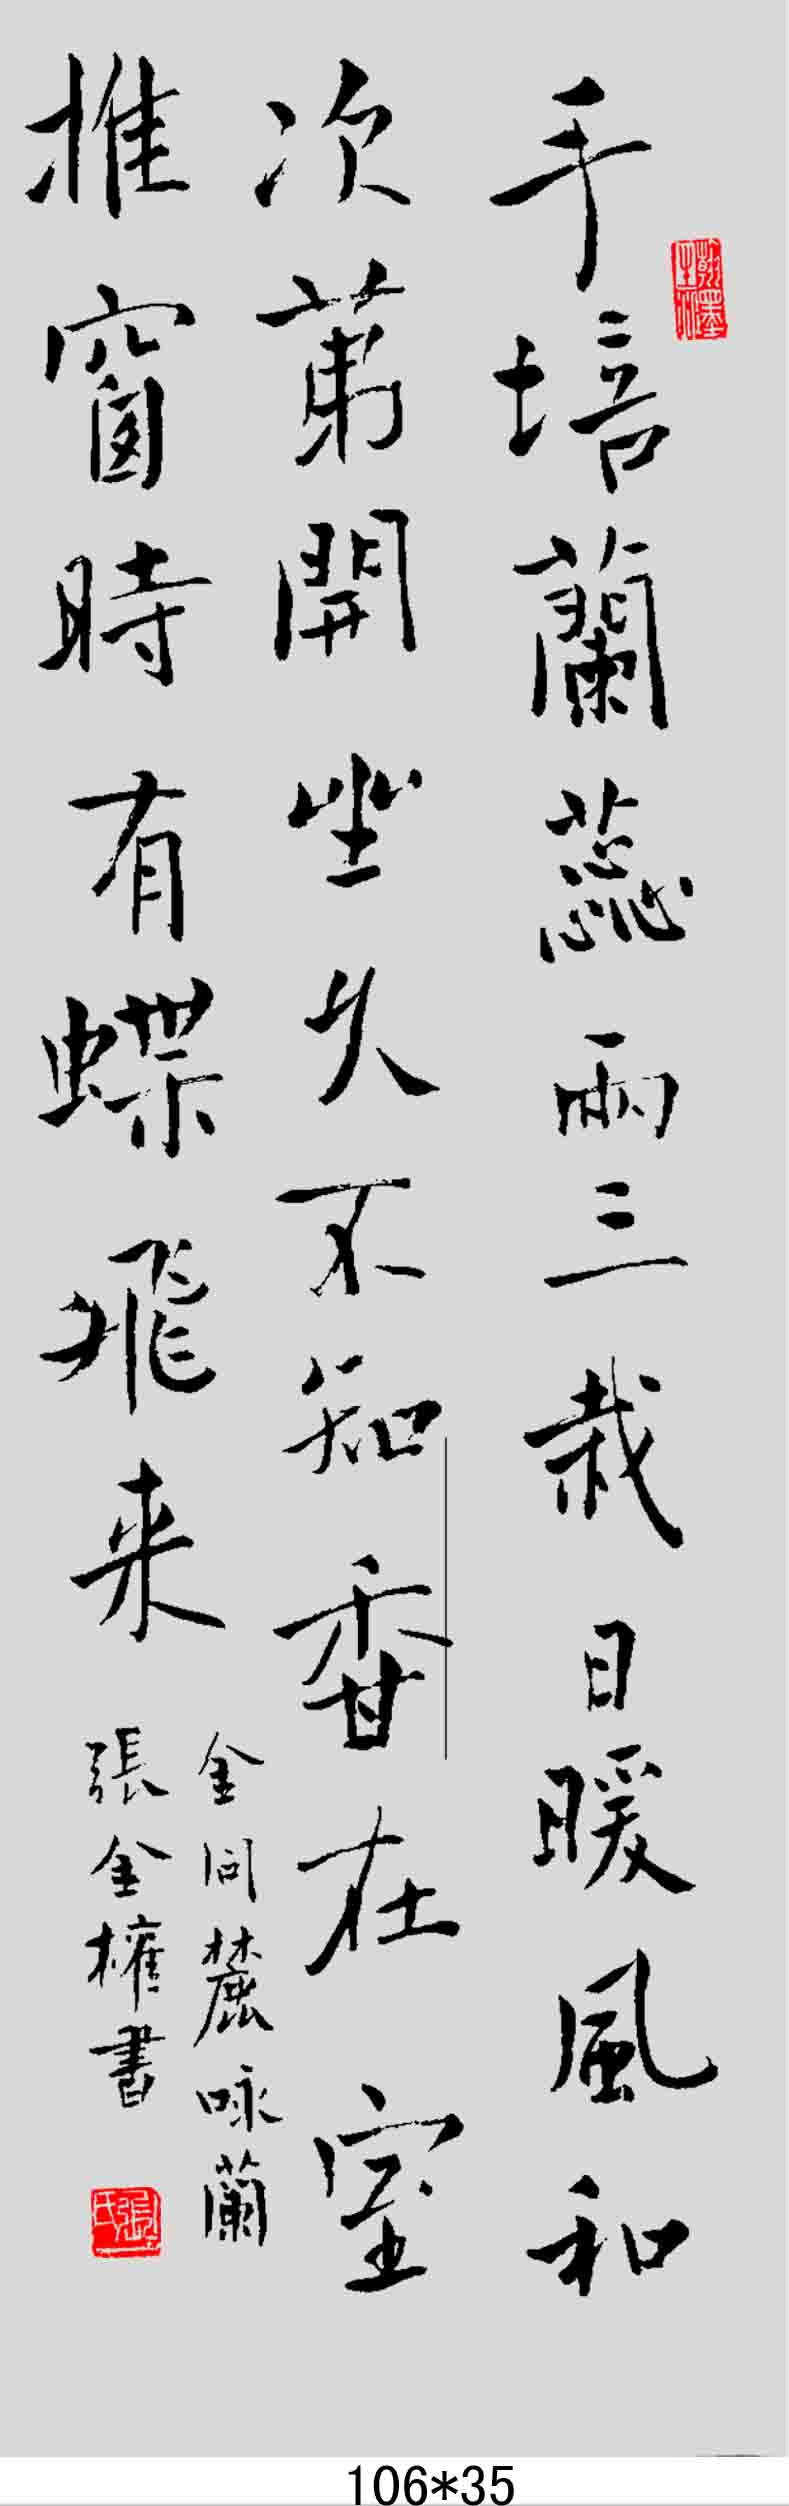 手培蘭蕊兩三栽日暖風和
次苐開坐久不知香在室
推窗時有蝶飛来
金同麓咏蘭
張金權書
翰墨
張氏
106*35